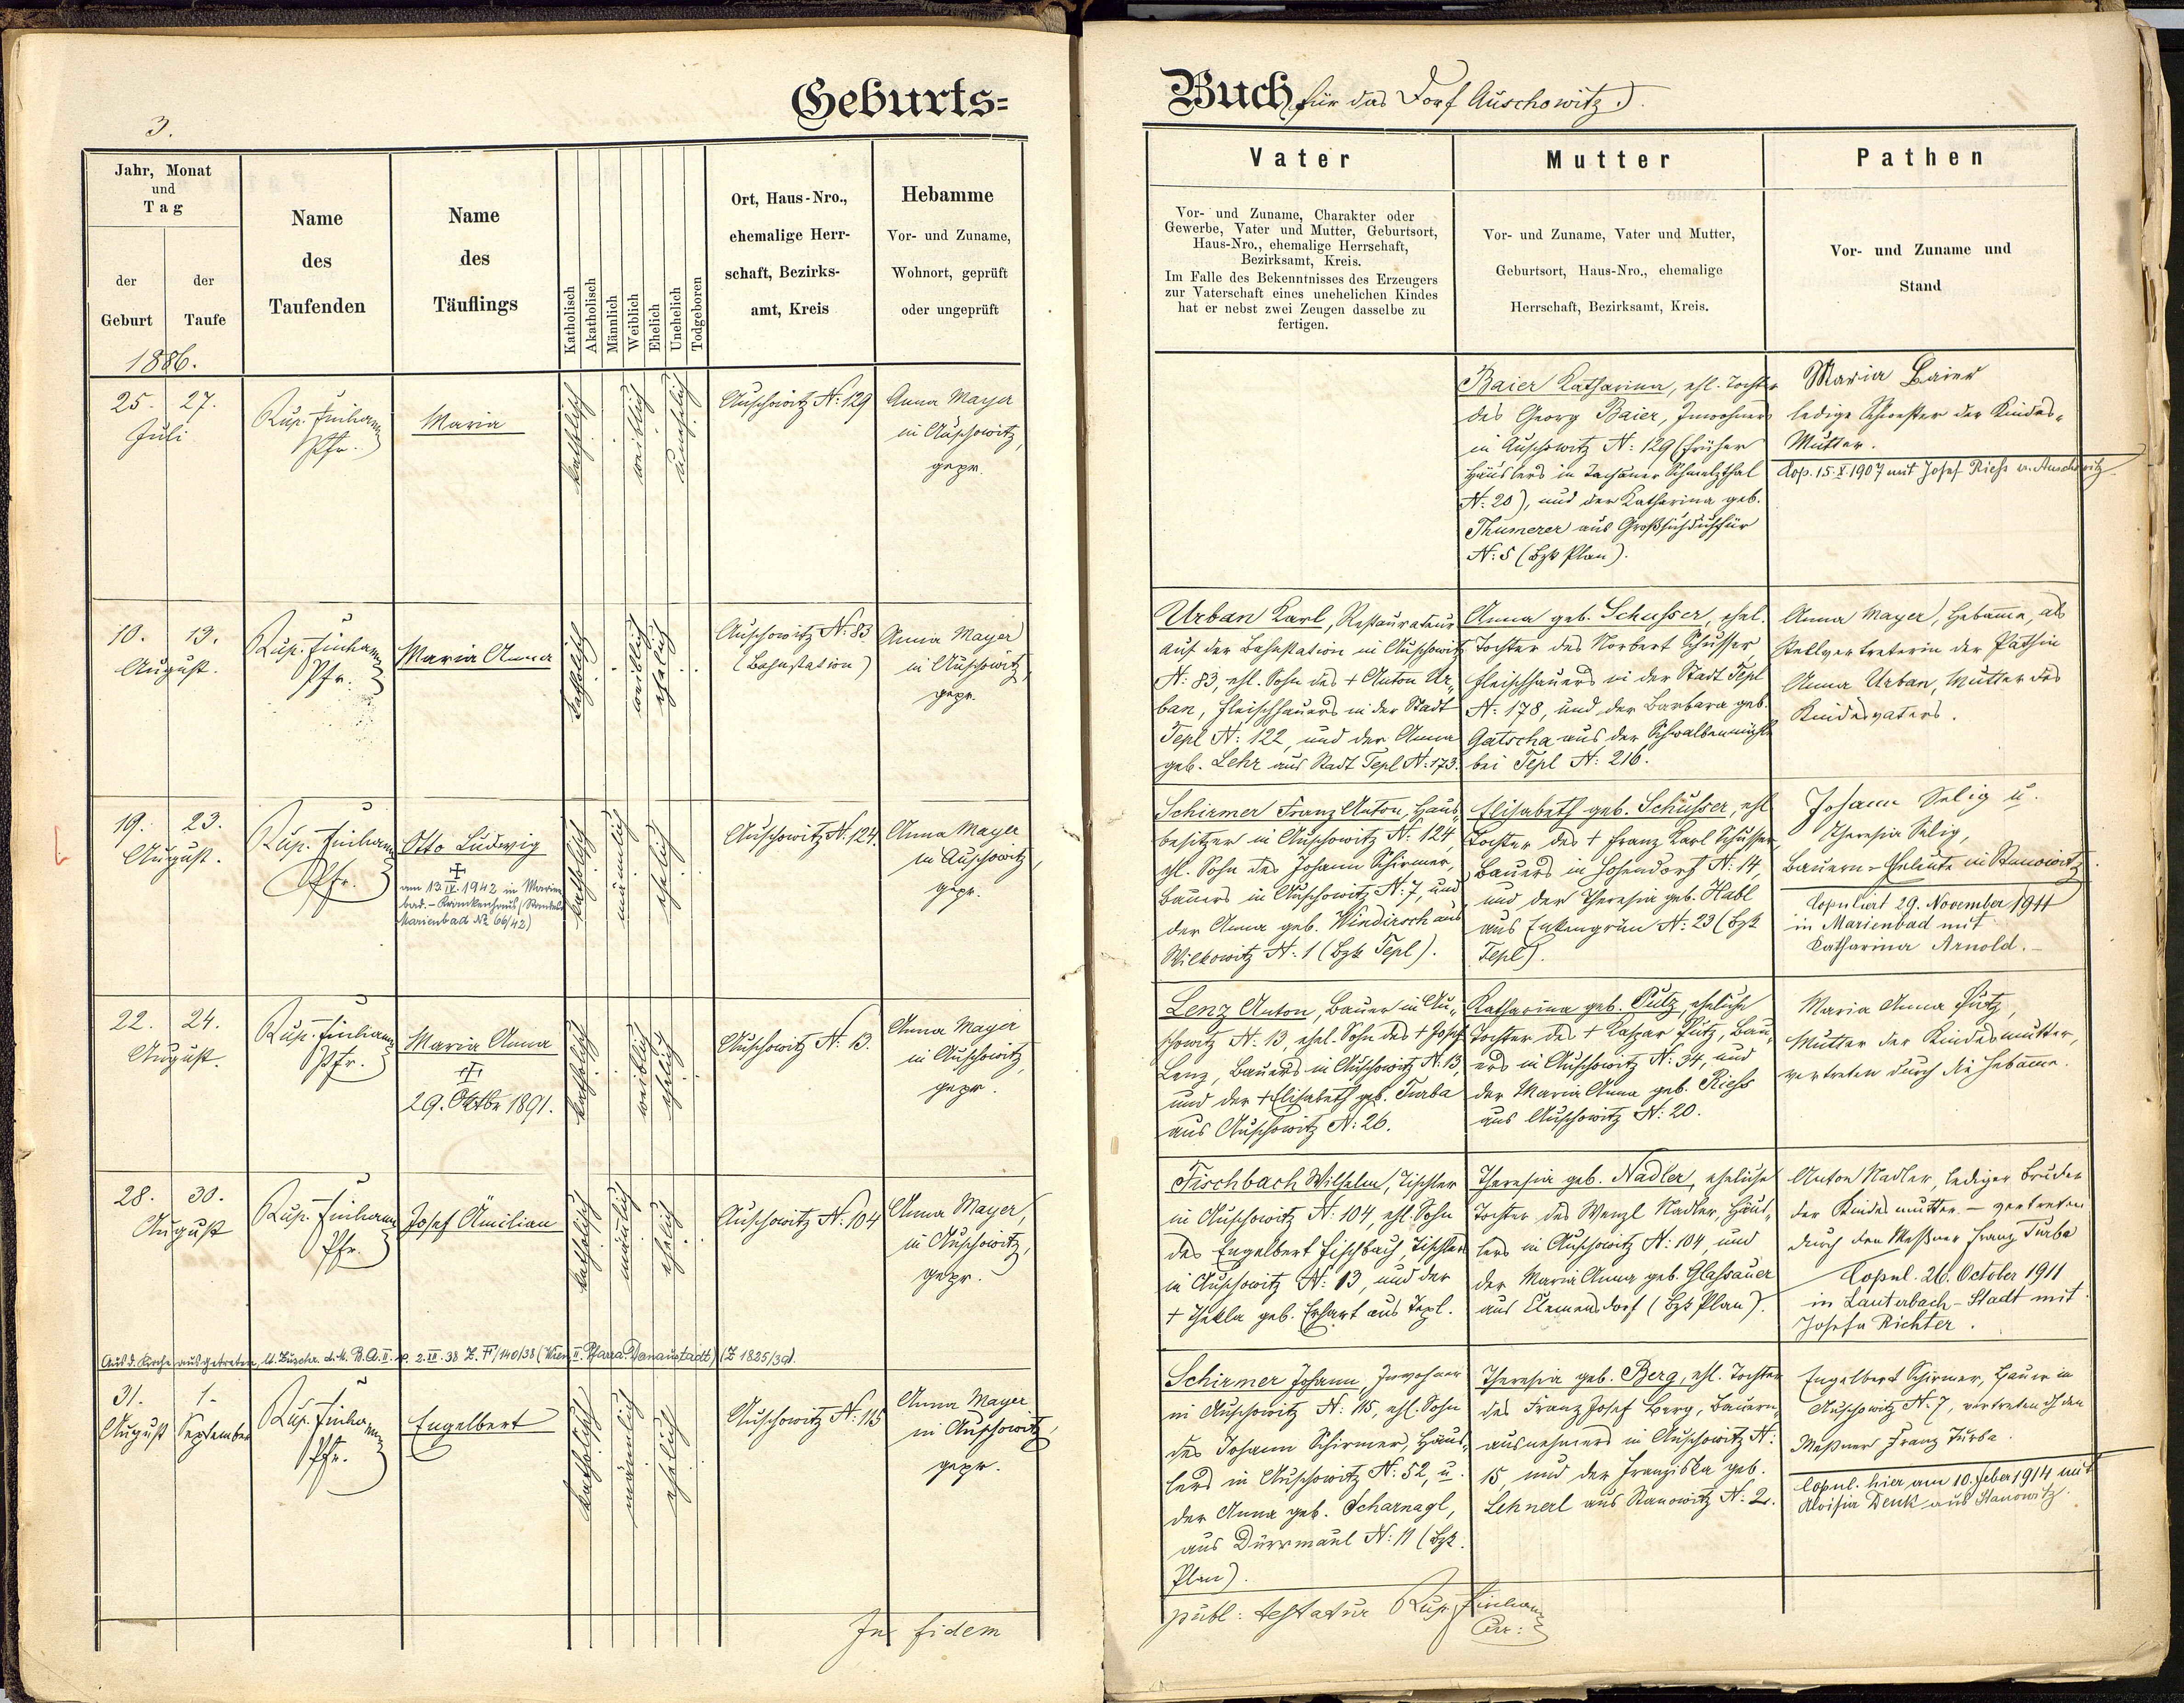 Geburts=
3.
Jahr, Monat
und
Tag
der
Geburt
der
Taufe
1886.
Name
des
Taufenden
Name
des
Täuflings
Katholisch
Akatholisch
Männlich
Weiblich
Ehelich
Unehelich
Todgeboren
Ort, Haus-Nro.,
ehemalige Herr-
schaft, Bezirks-
amt, Kreis
Hebamme
Vor- und Zuname,
Wohnort, geprüft
oder ungeprüft
25. 27.
Juli
Pfr.
Maria
katholisch
weiblich
unehelich
Auschowitz N: 129
Anna Mayer
in Auschowitz,
gepr.
10. 13.
August.
Pfr.
Maria Anna
katholisch
weiblich
ehelich
Auschowitz N: 83
(Bahnstation)
Anna Mayer
in Auschowitz,
gepr.
19. 23.
August.
Pfr.
Otto Ludwig
am 13.IV.1942 in Marien
bad. - Krankenhaus (Standes
Marienbad No 66/42)
katholisch
männlich
ehelich
Auschowitz N. 124.
Anna Mayer
in Auschowitz,
gepr.
22. 24.
August.
Pfr.
Maria Anna
29. Oktbr 1891.
katholisch
weiblich
ehelich
Auschowitz N: 13.
Anna Mayer
in Auschowitz,
gepr.
28. 30.
August
Pfr.
Josef Ämilian
katholisch
männlich
ehelich
Auschowitz N: 104
Anna Mayer,
in Auschowitz,
gepr.
Aus d. Kirche ausgetreten, lt. Zuschr. d. M. B. A. II. 2.IX.38 Z. (Wien, II. Pfarre Donaustadt) (Z 1825/39).
31. 1.
August September
Pfr.
Engelbert
katholisch
männlich
ehelich
Auschowitz N: 115
Anna Mayer
in Auschowitz,
gepr.
In fidem
Buch für das Dorf Auschowitz.
Vater
Vor- und Zuname, Charakter oder
Gewerbe, Vater und Mutter, Geburtsort,
Haus-Nro., ehemalige Herrschaft,
Bezirksamt, Kreis.
Im Falle des Bekenntnisses des Erzeugers
zur Vaterschaft eines unehelichen Kindes
hat er nebst zwei Zeugen dasselbe zu
fertigen.
Mutter
Vor- und Zuname, Vater und Mutter,
Geburtsort, Haus-Nro., ehemalige
Herrschaft, Bezirksamt, Kreis.
Pathen
Vor- und Zuname und
Stand
Baier Katharina, ehl. Tochter
des Georg Baier, Inwohners
in Auschowitz N: 129 (früher
Häuslers in Tachauer Schmelzthal
N: 20), und der Katharina geb.
Thumerer aus
N: 5 (Bzk Plan).
Maria Baier
ledige Schwester der Kindes-
Mutter.
Cop. 15. X 1907 mit Josef Riess in Auschowitz
Urban Karl, Restaurateur
auf der Bahnstation in Auschowitz
N: 83, ehl. Sohn des + Anton Ur-
ban, Fleischhauers in der Stadt
Tepl N: 122, und der Anna
geb. Lehr aus Stadt Tepl N: 173.
Anna geb. Schusser, ehel.
Tochter des Norbert Schusser
Fleischhauers in der Stadt Tepl
N: 178, und der Barbara geb.
Gatscha aus der Schwalbenmühle
bei Tepl N: 216.
Anna Mayer, Hebamme, als
Stellvertreterin der Pathin
Anna Urban, Mutter des
Kindesvaters.
Schirmer Franz Anton, Haus-
besitzer in Auschowitz N: 124,
ehl. Sohn des Johann Schirmer,
Bauers in Auschowitz N: 7, und
der Anna geb. Windirsch aus
Wilkowitz N: 1 (Bzk Tepl).
Elisabeth geb. Schusser, ehl
Tochter des + Franz Karl Schusser,
Bauers in Hohendorf N: 14,
und der Theresia geb. Habl
aus Enkengrün N: 23 (Bzk
Tepl).
Johann Selig u.
Theresia Selig,
Bauern-Eheleute in Stanowitz.
Copuliert 29. November 1911
in Marienbad mit
Katharina Arnold.-
Lenz Anton, Bauer in Au-
schowitz N: 13, ehel. Sohn des + Josef
Lenz, Bauers in Auschowitz N. 13,
und der + Elisabeth geb. Turba
aus Auschowitz N: 26.
Katharina geb. Putz, eheliche
Tochter des + Kaspar Putz, Bau-
ers in Auschowitz N: 34, und
der Maria Anna geb. Riess
aus Auschowitz N: 20.
Maria Anna Putz,
Mutter der Kindesmutter,
vertreten durch die Hebamme.
Fischbach Wilhelm, Tischler
in Auschowitz N: 104, ehl. Sohn
des Engelbert Fischbach, Tischlers
in Auschowitz N: 13, und der
+ Thekla geb. Erhart aus Tepl.
Theresia geb. Nadler, eheliche
Tochter des Wenzl Nadler, Häus-
lers in Auschowitz N: 104, und
der Maria Anna geb. Glassauer
aus Klemensdorf (Bzk Plan).
Anton Nadler, lediger Bruder
der Kindesmutter - vertreten
durch den Meßner Franz Turba
Copul. 26. October 1911
in Lauterbach-Stadt mit
Josefa Richter.
Schirmer Johann, Inwohner
in Auschowitz N: 115, ehl. Sohn
des Johann Schirmer, Häus-
lers in Auschowitz N: 52, u.
der Anna geb. Scharnagl,
aus Dürrmaul N: 11 (Bzk.
Plan).
Theresia geb. Berg, ehl. Tochter
des Franz Josef Berg, Bauern-
ausnehmers in Auschowitz N:
15 und der Franziska geb.
Lehnerl aus Stanowitz N: 2.
Engelbert Schirmer, Bauer in
Auschowitz N. 7, vertreten dch den
Meßner Franz Turba.
Copul. hier am 10. Feber 1914 mit
Aloisia Denk aus Stanowitz.
publ: testatur
Cur: